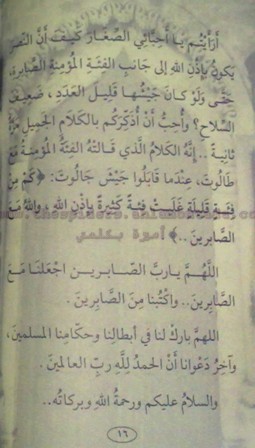 أَرَأَيْتُم يَا أَحِبَّائِي الصِّغَارَ كَيْفَ أَنَّ النَّصْرَ
يَكُونُ بِإِذْنِ اللهِ إِلَى جَانِبِ الفِئَةِ المُؤْمِنَةِ الصَّابِرَةِ،
حَتَّى وَلَوْ كَانَ جَيْشُهَا قَلِيلَ العَدَدِ، ضَعِيفَ
السِّلَاحِ؟ وَأُحِبُّ أَنْ أُذَكِّرَكُم بِالكَلَامِ الجَمِيلِ مَرَّةً
ثَانِيَةً .. إِنَّهُ الكَلَامُ الَّذِي قَالَتْهُ الفِئَةُ المُؤْمِنَةُ مَعَ
طَالُوتَ، عِنْدَمَا قَابَلُوا جَيْشَ جَالُوتَ: ﴿كَمْ مِنْ
فِئَةٍ قَلِيلَةٍ غَلَبَتْ فِئَةً كَثِيرَةً بِإِذْنِ اللهِ، وَاللهُ مَعَ
الصَّابِرِينَ ..﴾
اللَّهُمَّ يَارَبَّ الصَّابِرِينَ اجْعَلْنَا مَعَ
الصَّابِرِينَ.. وَاكْتُبْنَا مِنَ الصَّابِرِينَ .
اللهم بارِكْ لنا في أبطالِنا وحكّامِنا المسلمين،
وآخِرُ دَعْوانا أنْ الحمدُ لِلَّهِ ربِّ العالمين .
والسلامُ عليكم ورحمةُ اللهِ وبركاتُه..
١٦